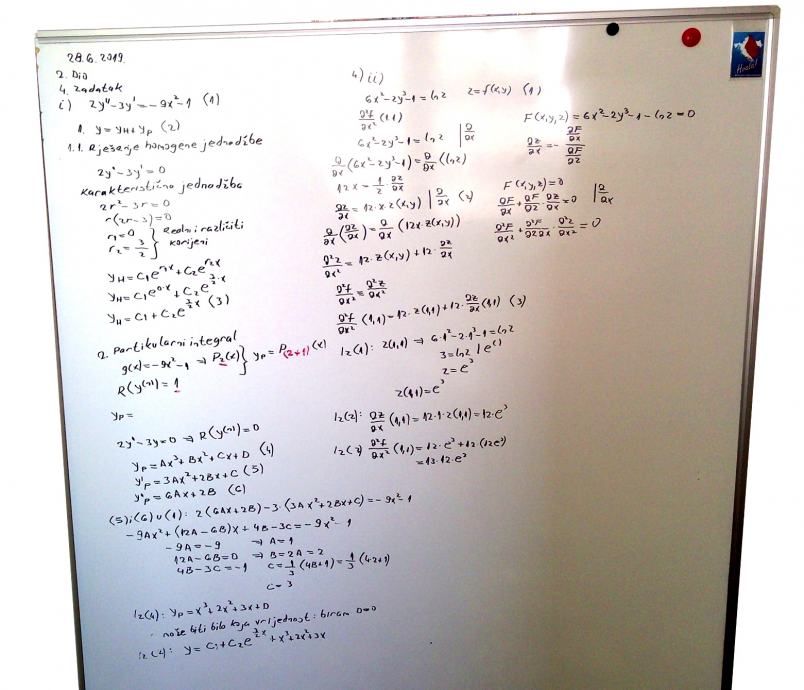 28.6.2019.
2. Dio
4. Zadatak
i) 2y'' - 3y' = -9x² - 1 (1)
1. y = y_H + y_P (2)
1.1. Rješenje homogene jednadžbe
2y'' - 3y' = 0
Karakteristična jednadžba
2r² - 3r = 0
r(2r - 3) = 0
r₁ = 0
r₂ = 3/2 } Realni i različiti korijeni
y_H = C₁e^(r₁x) + C₂e^(r₂x)
y_H = C₁e^(0·x) + C₂e^(3/2·x)
y_H = C₁ + C₂e^(3/2 x) (3)
2. Partikularni integral
g(x) = -9x² - 1 ⇒ P₂(x) } y_P = P_(2+1)(x)
R(y^(n)) = 1
y_P =
2y'' - 3y = 0 ⇒ R(y^(n)) = 0
y_P = Ax³ + Bx² + Cx + D (4)
y'_P = 3Ax² + 2Bx + C (5)
y''_P = 6Ax + 2B (6)
(5) i (6) u (1): 2(6Ax + 2B) - 3·(3Ax² + 2Bx + C) = -9x² - 1
-9Ax² + (12A - 6B)x + 4B - 3C = -9x² - 1
-9A = -9 ⇒ A = 1
12A - 6B = 0 ⇒ B = 2A = 2
4B - 3C = -1 C = 1/3 (4B + 1) = 1/3 (4·2 + 1)
C = 3
Iz (4): y_P = x³ + 2x² + 3x + D
može biti bilo koja vrijednost: biram D = 0
y = C₁ + C₂e^(3/2 x) + x³ + 2x² + 3x
4) ii)
6x² - 2y³ - 1 = ln z z = f(x,y) (1)
∂²f/∂x² (1,1)
6x² - 2y³ - 1 = ln z | ∂/∂x
∂/∂x (6x² - 2y³ - 1) = ∂/∂x (ln z)
12x = 1/z · ∂z/∂x
∂z/∂x = 12·x·z(x,y) | ∂/∂x (2)
∂/∂x (∂z/∂x) = ∂/∂x (12x·z(x,y))
∂²z/∂x² = 12·z(x,y) + 12·∂z/∂x
∂²f/∂x² = ∂²z/∂x²
∂²f/∂x² (1,1) = 12·z(1,1) + 12·∂z/∂x (1,1) (3)
Iz (1): z(1,1) ⇒ 6·1² - 2·1³ - 1 = ln z
3 = ln z / e^( )
z = e³
z(1,1) = e³
Iz (2): ∂z/∂x (1,1) = 12·1·z(1,1) = 12·e³
∂²f/∂x² (1,1) = 12·e³ + 12·(12e³)
= 13·12·e³
F(x,y,z) = 6x² - 2y³ - 1 - ln z = 0
∂z/∂x = - (∂F/∂x)/(∂F/∂z)
F(x,y,z) = 0 | ∂/∂x
∂F/∂x + ∂F/∂z · ∂z/∂x = 0
∂²F/∂x² + ∂²F/∂z∂x · ∂²z/∂x² = 0